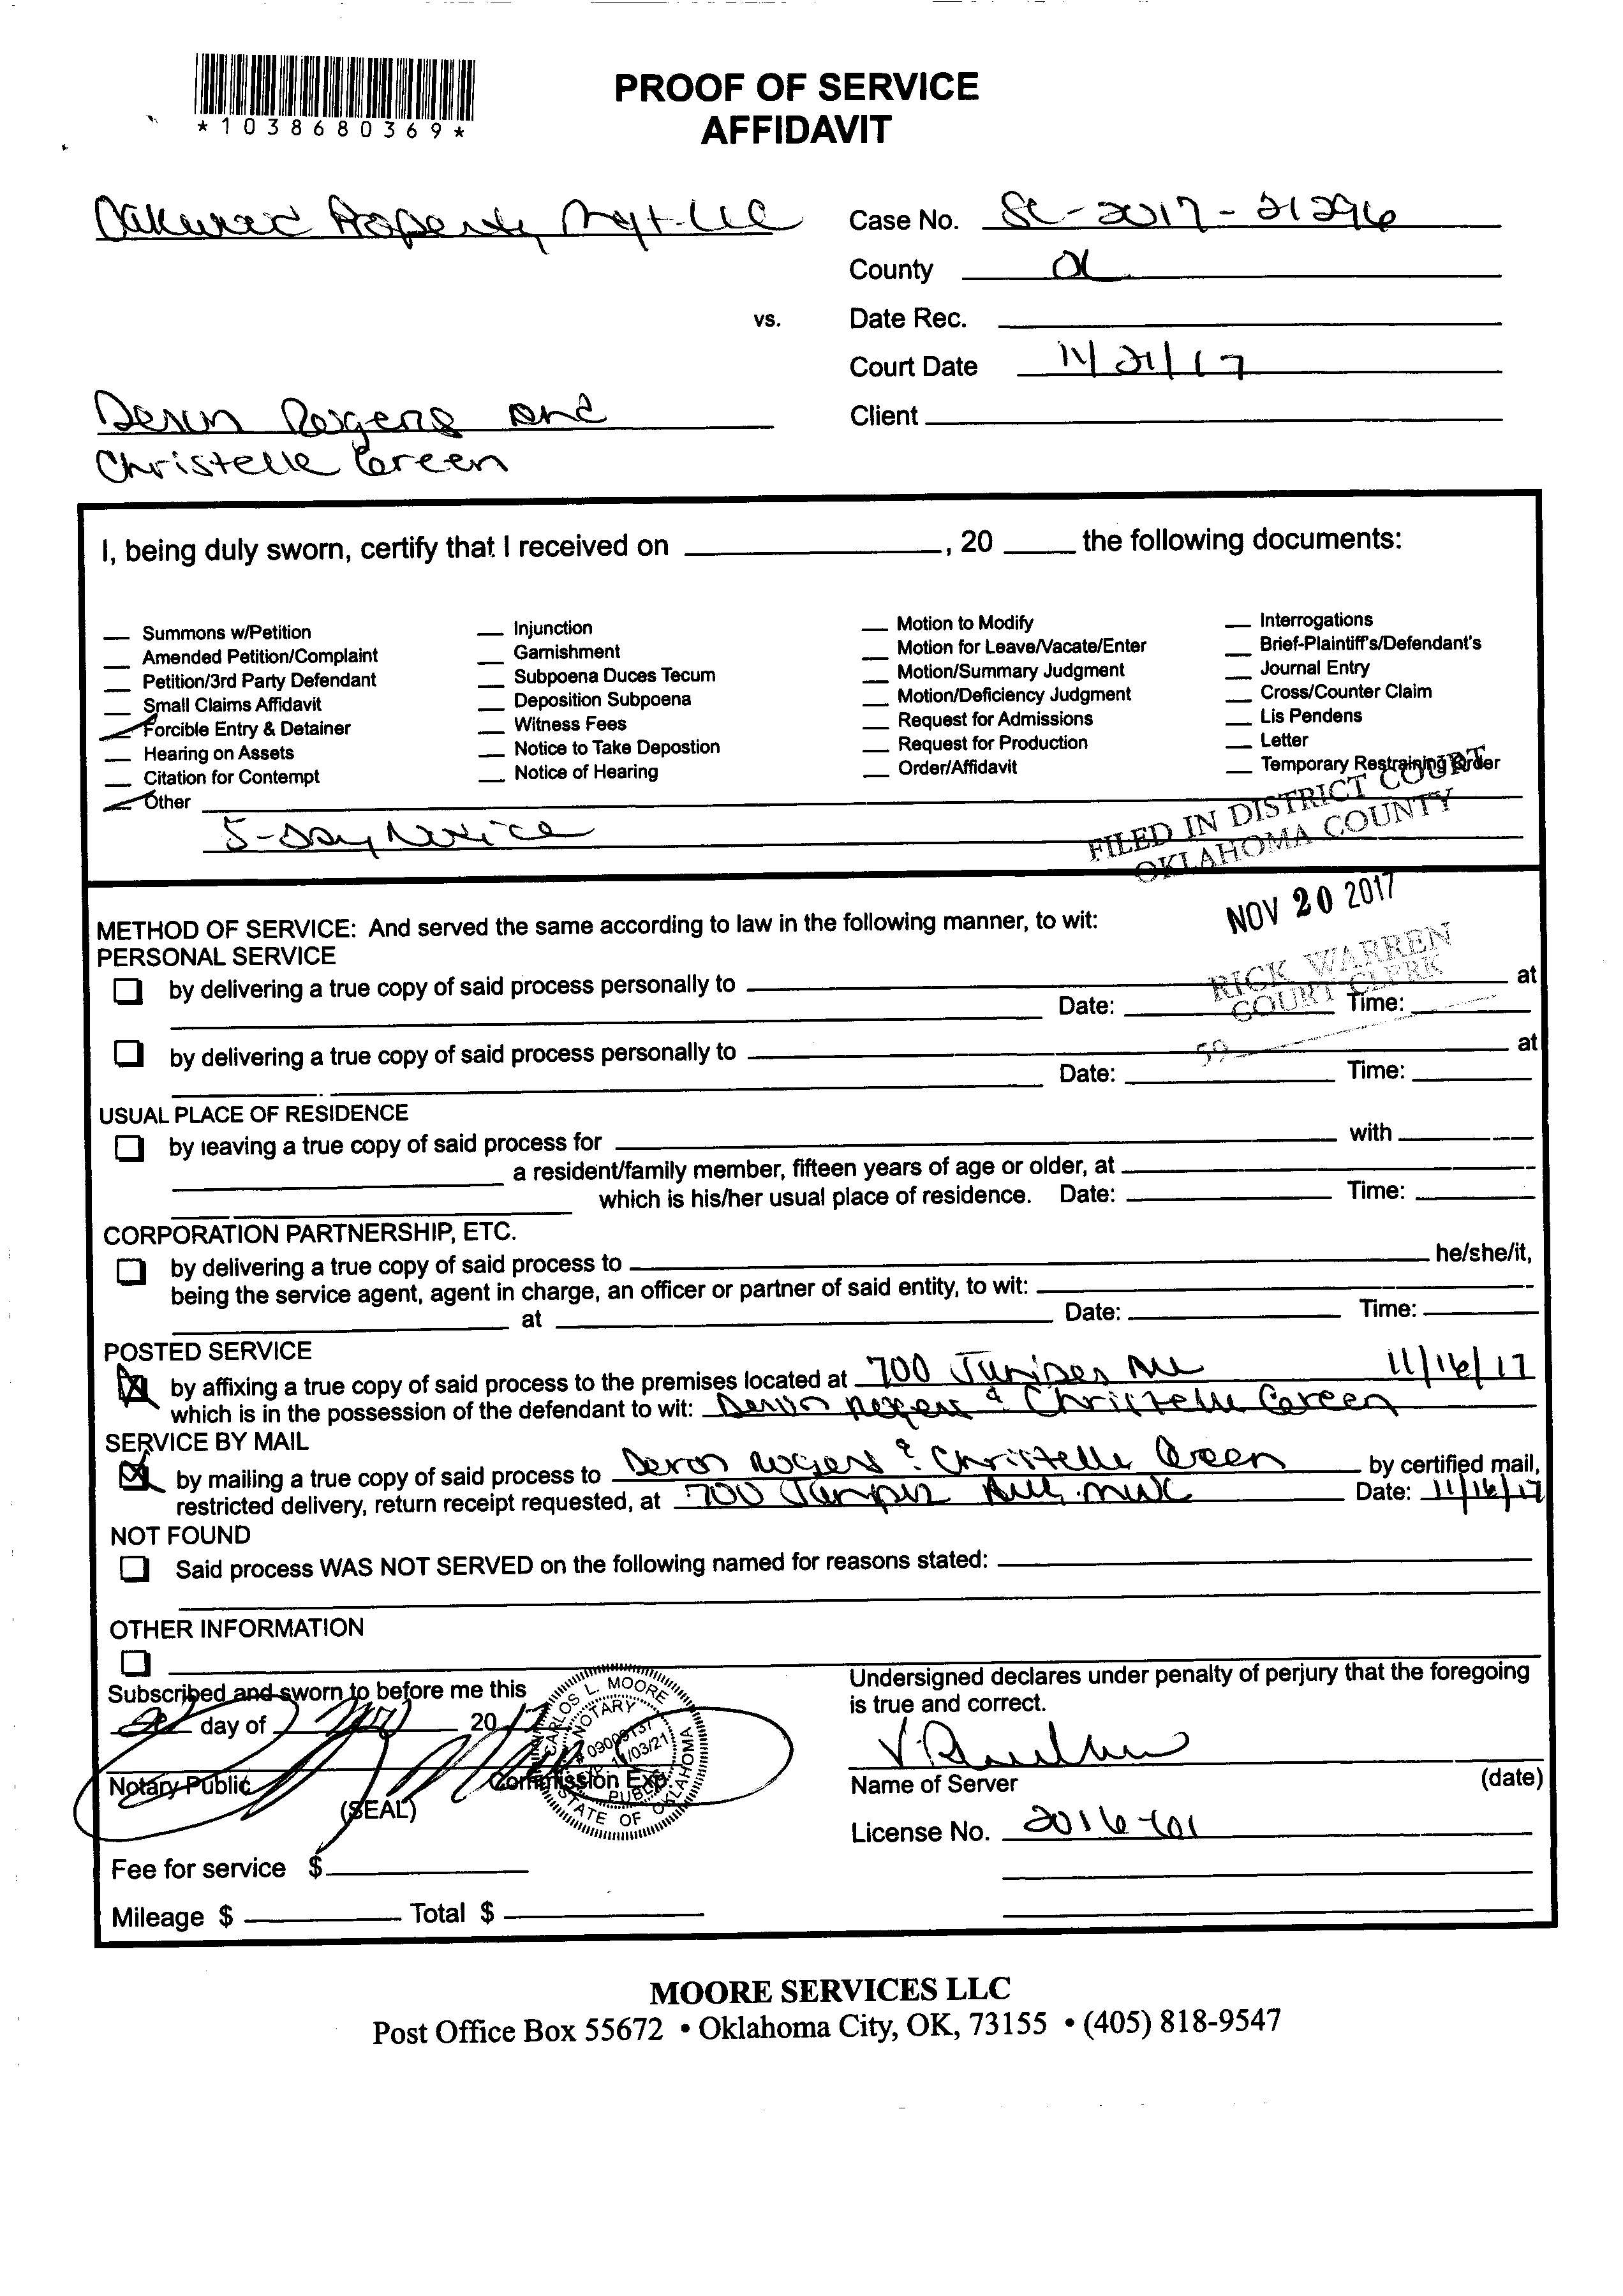 *1038680369*
PROOF OF SERVICE
AFFIDAVIT
Property Mgt. LLC
Case No. SC-2017-21296
County OK
Date Rec.
vs.
Court Date 11/21/17
Deron Rogers and
Client
Christelle Green
I, being duly sworn, certify that I received on , 20 the following documents:
Summons w/Petition
Amended Petition/Complaint
Petition/3rd Party Defendant
Small Claims Affidavit
Forcible Entry & Detainer
Hearing on Assets
Citation for Contempt
Other
Injunction
Garnishment
Subpoena Duces Tecum
Deposition Subpoena
Witness Fees
Notice to Take Depostion
Notice of Hearing
Motion to Modify
Motion for Leave/Vacate/Enter
Motion/Summary Judgment
Motion/Deficiency Judgment
Request for Admissions
Request for Production
Order/Affidavit
Interrogations
Brief-Plaintiff's/Defendant's
Journal Entry
Cross/Counter Claim
Lis Pendens
Letter
Temporary Restraining Order
5-Day Notice
FILED IN DISTRICT COURT
OKLAHOMA COUNTY
NOV 20 2017
RICK WARREN
COURT CLERK
59
METHOD OF SERVICE: And served the same according to law in the following manner, to wit:
PERSONAL SERVICE
by delivering a true copy of said process personally to at
Date: Time:
by delivering a true copy of said process personally to at
Date: Time:
USUAL PLACE OF RESIDENCE
by leaving a true copy of said process for with
a resident/family member, fifteen years of age or older, at
which is his/her usual place of residence. Date: Time:
CORPORATION PARTNERSHIP, ETC.
by delivering a true copy of said process to he/she/it,
being the service agent, agent in charge, an officer or partner of said entity, to wit:
at Date: Time:
POSTED SERVICE
by affixing a true copy of said process to the premises located at 700 Juniper Ave 11/16/17
which is in the possession of the defendant to wit: Deron Rogers & Christelle Green
SERVICE BY MAIL
by mailing a true copy of said process to Deron Rogers & Christelle Green by certified mail,
restricted delivery, return receipt requested, at 700 Juniper Ave. MWC Date: 11/16/17
NOT FOUND
Said process WAS NOT SERVED on the following named for reasons stated:
OTHER INFORMATION
Subscribed and sworn to before me this
day of 2017
Notary Public
(SEAL)
Commission Exp.
CARLOS L. MOORE
NOTARY
# 09009137
EXP. 11/03/21
PUBLIC
STATE OF OKLAHOMA
Undersigned declares under penalty of perjury that the foregoing
is true and correct.
Name of Server (date)
License No.
Fee for service $
Mileage $ Total $
MOORE SERVICES LLC
Post Office Box 55672 • Oklahoma City, OK, 73155 • (405) 818-9547